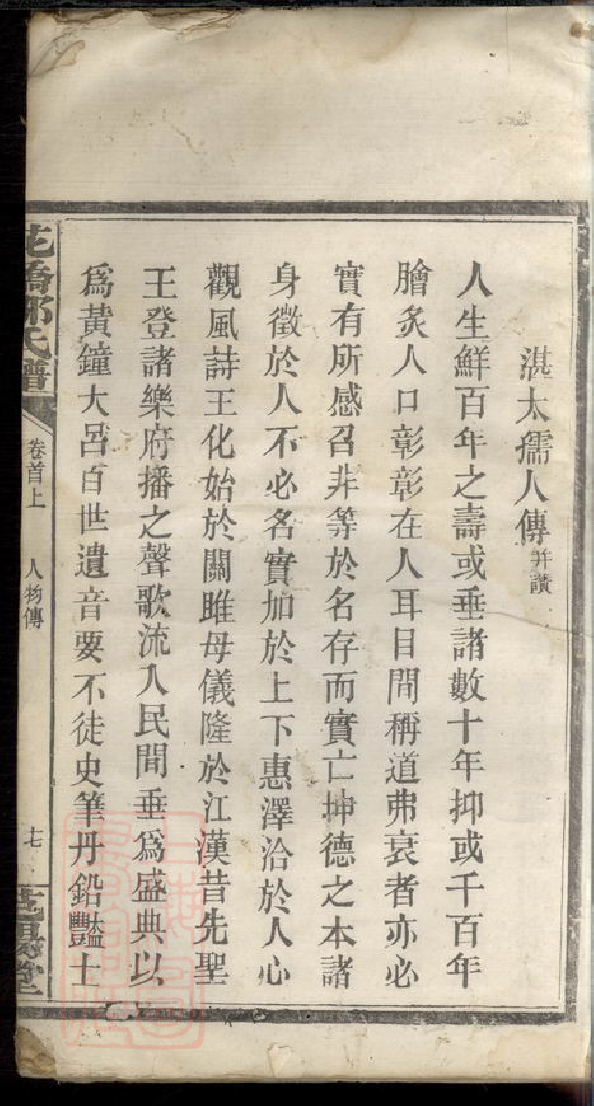 湛太孺人傳并讚
人生鮮百年之壽或垂諸數十年抑或千百年
膾炙人口彰彰在人耳目間稱道弗衰者亦必
實有所感召非等於名存而實亡坤德之本諸
身徵於人不必名實加於上下惠澤洽於人心
觀風詩王化始於關雎母儀隆於江漢昔先聖
王登諸樂府播之聲歌流入民間垂為盛典以
為黃鐘大呂百世遺音要不徒史筆丹鉛豔士
花橋鄧氏譜
卷首上
人物傳
七